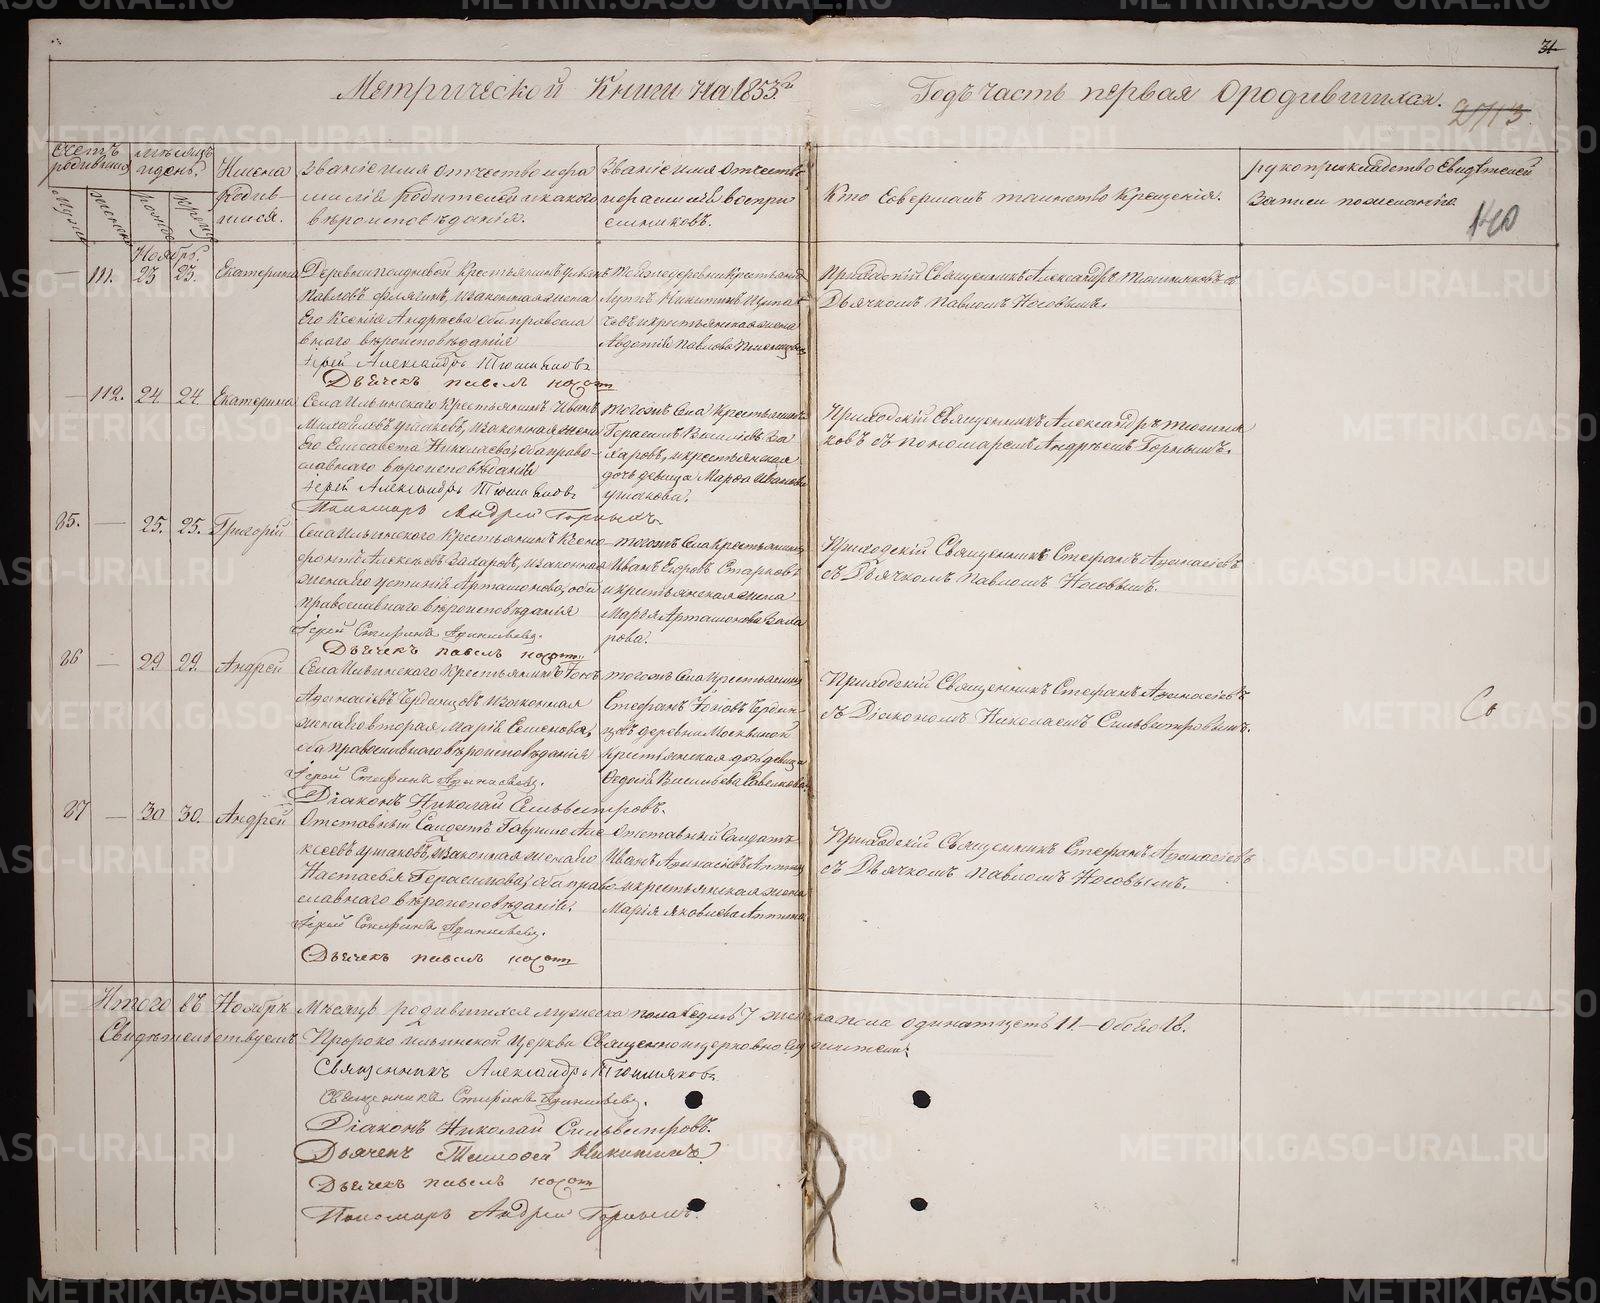 31
Метрической Книги На 1853й Годъ Часть первая О родившихся.
2713
Счетъ родившихся
Мѣсяцъ и день.
мужеска
женска
рожденія
крещенія
Имена родившихся.
Званіе имя отчество и фамилія родителей и какого вѣроисповѣданія.
Званіе имя отчество и фамилія воспріемниковъ.
Кто Совершалъ таинство Крещенія.
рукоприкладство Свидѣтелей Записи по желанію
140
Ноябрь.
— 111. 23 23. Екатерина
Деревни Крестьянинъ
Павловъ и законная жена
Его Ксенія Андрѣева оба правосла
внаго вѣроисповѣданія
Іерей Александръ Тюшняковъ
Дьячекъ павелъ носовъ
Тойже деревни Крестьянинъ
Никитинъ
и крестьянская жена
Авдотія Павлова
Приходскій Священникъ Александръ Тюшняковъ съ
Дьячкомъ Павломъ Носовымъ.
— 112. 24 24 Екатерина
Села Ильинскаго Крестьянинъ Иванъ
Михайловъ Ушаковъ, и законная жена
Его Елисавета Николаева, оба право-
славнаго вѣроисповѣданія
Іерей Александръ Тюшняковъ
Пономарь Андрей Горныхъ.
тогожъ Села Крестьянинъ
Герасимъ Васильевъ За
харовъ, и крестьянская
дочь девица Марѳа Иванова
Ушакова.
Приходскій Священникъ Александръ Тюшня
ковъ съ пономаремъ Андрѣемъ Горнымъ.
85. — 25. 25. Григорій
Села Ильинского Крестьянинъ Ксено
фонтъ Алексѣевъ Захаровъ, и законная
жена его Устинія Артамонова, оба
православнаго вѣроисповѣданія
Іерей Стефанъ Аѳанасьевъ.
Дьячекъ павелъ носовъ
тогожъ Села Крестьянинъ
Иванъ Егоровъ Старковъ
и крестьянская жена
Марья Артамонова Заха
рова.
Приходскій Священникъ Стефанъ Аѳанасіевъ
съ Дьячкомъ Павломъ Носовымъ.
86 — 29 29. Андрей
Села Ильинского Крестьянинъ
Аѳанасіевъ Чердынцовъ и законная
жена его вторая Марія Семенова,
оба православнаго вѣроисповѣданія
Іерей Стефанъ Аѳанасьевъ.
Діаконъ Николай Сильвестровъ.
тогожъ Села Крестьянинъ
Стефанъ Чердын
цовъ деревни Москвиной
Крестьянская дочь девица
Ѳедосія Васильева
Приходскій Священникъ Стефанъ Аѳанасіевъ
съ Діакономъ Николаемъ Сильвестровымъ.
87 — 30 30. Андрей
Отставный Солдатъ Гаврило Але
ксѣевъ Ушаковъ, и законная жена его
Настасья Герасимова, оба право
славнаго вѣроисповѣданія.
Іерей Стефанъ Аѳанасьевъ.
Дьячекъ павелъ носовъ
Отставный Солдатъ
Иванъ Аѳанасіевъ
и крестьянская жена
Марія Яковлева
Приходскій Священникъ Стефанъ Аѳанасіевъ
съ Дьячкомъ Павломъ Носовымъ.
Итого въ Ноябрѣ Мѣсяцѣ родившихся мужеска пола седмь 7 женска пола одинатцеть 11 — обоего 18.
Свидѣтельствуемъ Пророко Ильинской Церкви Священноцерковнослужители:
Священникъ Александръ Тюшняковъ.
Священникъ Стефанъ Аѳанасьевъ.
Діаконъ Николай Сильвестровъ.
Дьячекъ Никитинъ
Дьячекъ павелъ носовъ
Пономарь Андрей Горныхъ.
METRIKI.GASO-URAL.RU